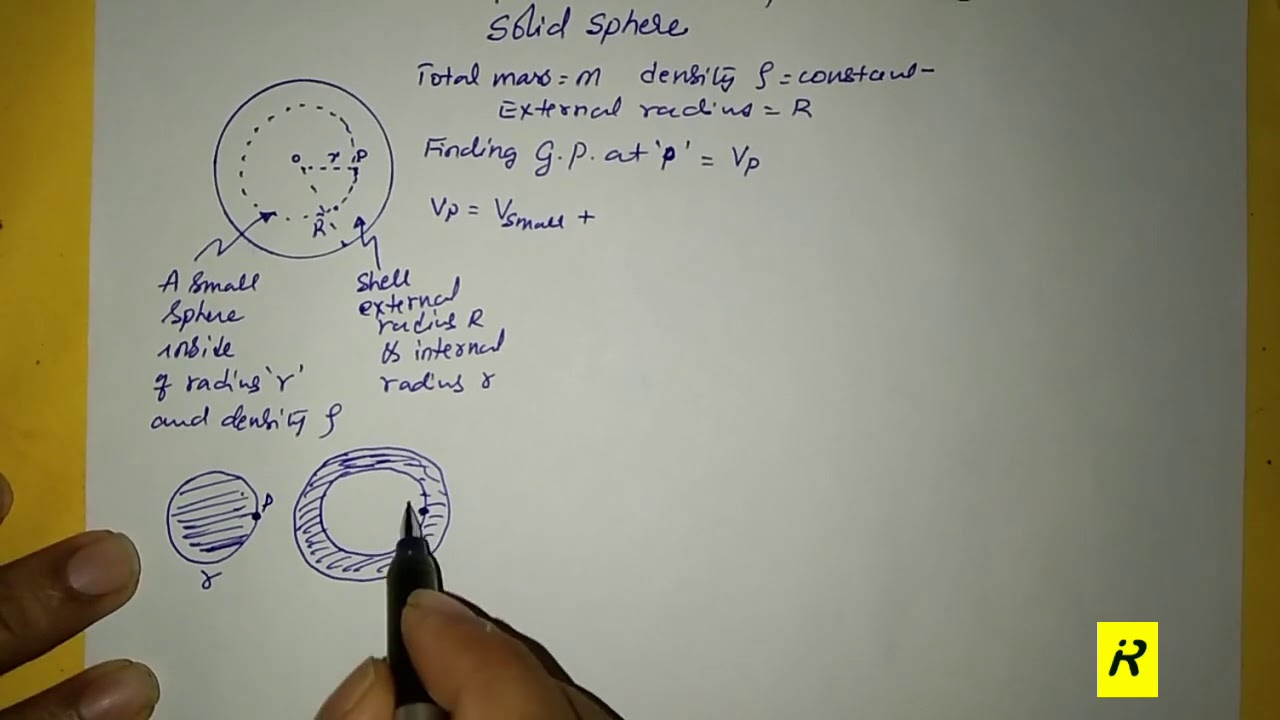 Solid Sphere
Total mass = m density ρ = constant
External radius = R
Finding G.P. at 'P' = Vp
Vp = Vsmall +
O r P
R
A small
sphere
inside
of radius 'r'
and density ρ
Shell
external
radius R
& internal
radius r
P
r
R